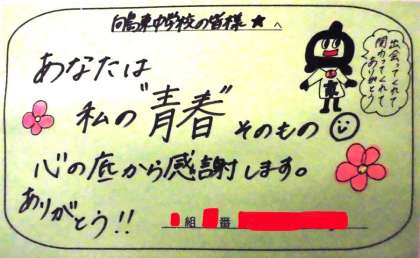 向島東中学校の皆様★へ
出会ってくれて
関わってくれて
ありがとう
あなたは
私の"青春"そのもの
心の底から感謝します。
ありがとう!!
組 番